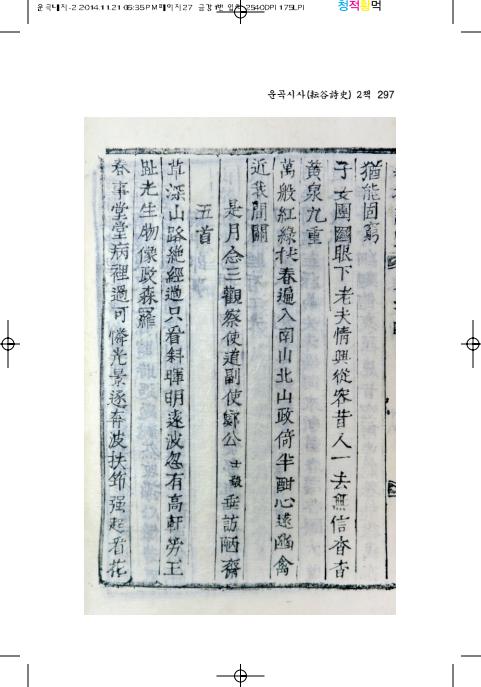 운곡대지-2.2014.11.21 05:35 PM 페이지27 2540DPI 175LPI
청적황먹
운곡시사(耘谷詩史) 2책 297
猶能固窮
子女團圞眼下老夫情興從容昔人一去無信杳杳
黄泉九重
萬般紅綠挾春遍入南山北山政倚半酣心遠幽禽
近我間關
是月念三觀察使道副使鄭公士毅垂訪陋齋
五首
草深山路絶經過只看斜暉明遠波忽有高軒勞玉
趾先生物像政森羅
春事堂堂病裡過可憐光景逐奔波扶節强起看花